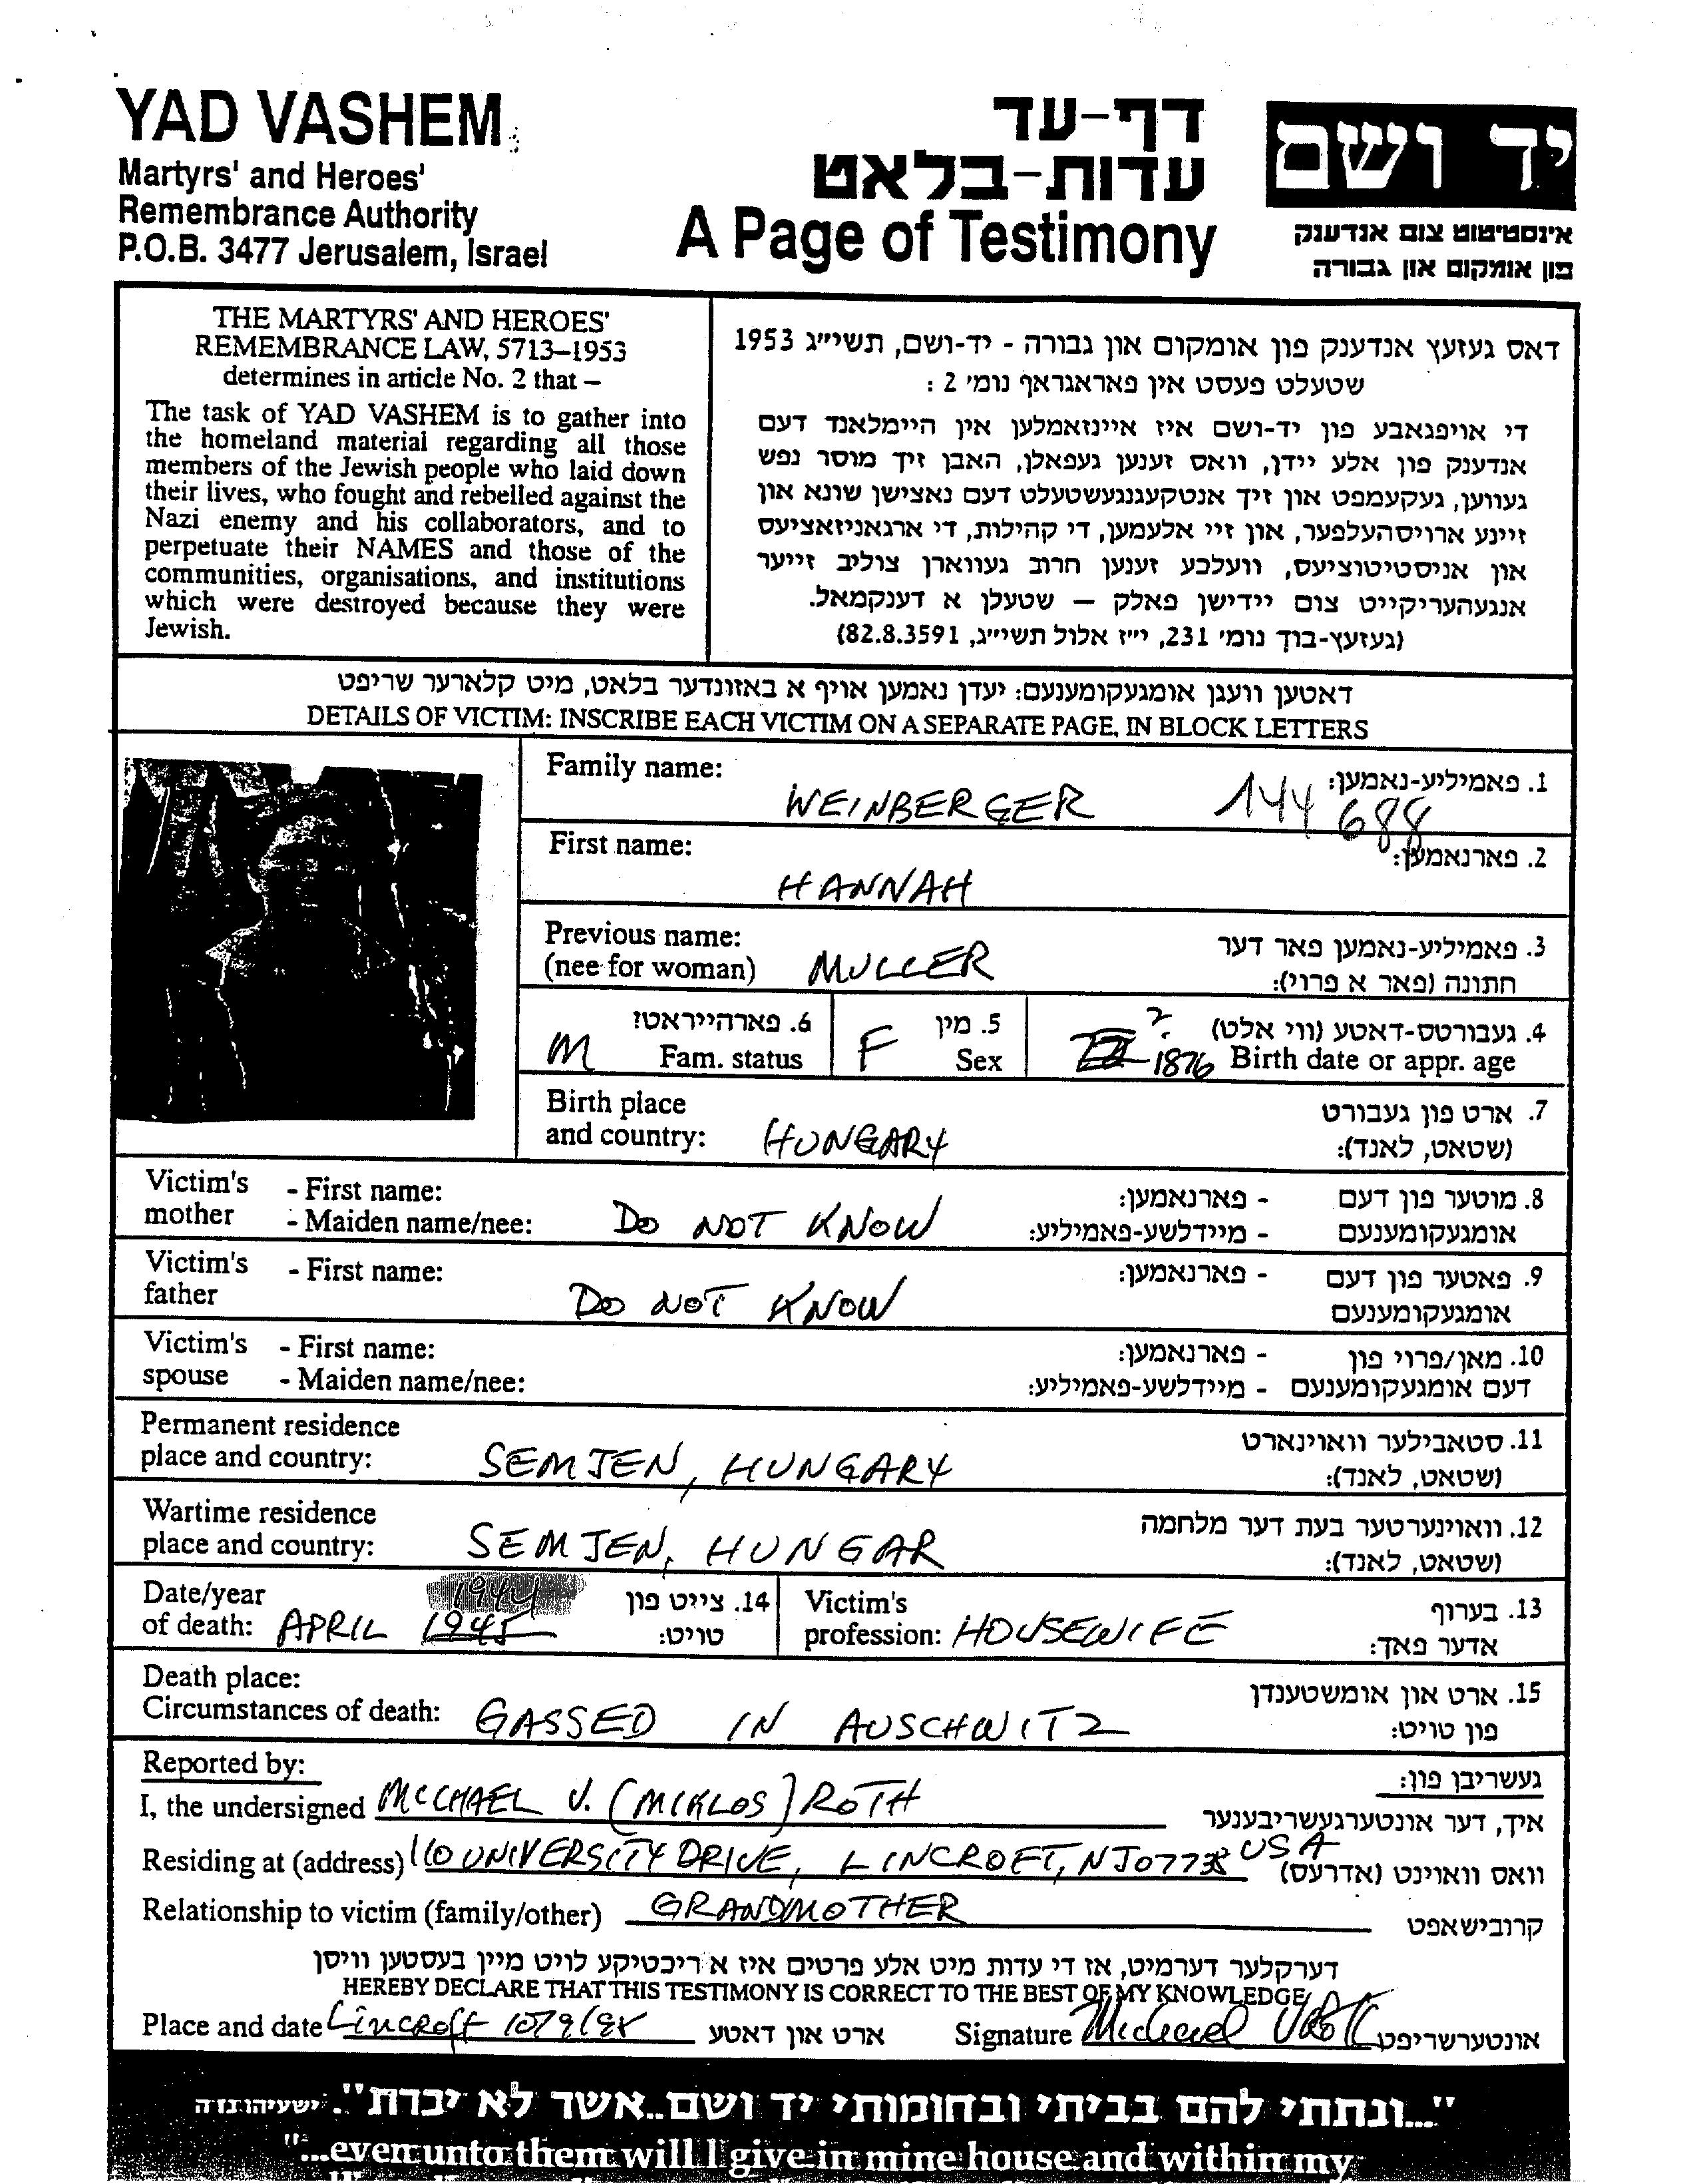 YAD VASHEM
Martyrs' and Heroes'
Remembrance Authority
P.O.B. 3477 Jerusalem, Israel
דף-עד
עדות-בלאט
A Page of Testimony
יד ושם
אינסטיטוט צום אנדענק
פון אומקום און גבורה
THE MARTYRS' AND HEROES'
REMEMBRANCE LAW, 5713–1953
determines in article No. 2 that –
The task of YAD VASHEM is to gather into
the homeland material regarding all those
members of the Jewish people who laid down
their lives, who fought and rebelled against the
Nazi enemy and his collaborators, and to
perpetuate their NAMES and those of the
communities, organisations, and institutions
which were destroyed because they were
Jewish.
דאס געזעץ אנדענק פון אומקום און גבורה - יד-ושם, תשי״ג 1953
שטעלט פעסט אין פאראגראף נומ׳ 2 :
די אויפגאבע פון יד-ושם איז איינזאמלען אין היימלאנד דעם
אנדענק פון אלע יידן, וואס זענען געפאלן, האבן זיך מוסר נפש
געווען, געקעמפט און זיך אנטקעגנגעשטעלט דעם נאצישן שונא און
זיינע ארויסהעלפער, און זיי אלעמען, די קהילות, די ארגאניזאציעס
און אניסטיטוציעס, וועלכע זענען חרוב געווארן צוליב זייער
אנגעהעריקייט צום יידישן פאלק – שטעלן א דענקמאל.
(געזעץ-בוך נומ׳ 231, י״ז אלול תשי״ג, 82.8.3591)
דאטען וועגן אומגעקומענעם: יעדן נאמען אויף א באזונדער בלאט, מיט קלארער שריפט
DETAILS OF VICTIM: INSCRIBE EACH VICTIM ON A SEPARATE PAGE, IN BLOCK LETTERS
Family name: WEINBERGER 144 688 1. פאמיליע-נאמען:
First name: HANNAH 2. פארנאמען:
Previous name: 3. פאמיליע-נאמען פאר דער
(nee for woman) MULLER חתונה (פאר א פרוי):
6. פארהייראט? 5. מין ? 4. געבורטס-דאטע (ווי אלט)
M Fam. status F Sex 1876 Birth date or appr. age
Birth place 7. ארט פון געבורט
and country: HUNGARY (שטאט, לאנד):
Victim's - First name: - פארנאמען: 8. מוטער פון דעם
mother - Maiden name/nee: DO NOT KNOW - מיידלשע-פאמיליע: אומגעקומענעם
Victim's - First name: - פארנאמען: 9. פאטער פון דעם
father DO NOT KNOW אומגעקומענעם
Victim's - First name: - פארנאמען: 10. מאן/פרוי פון
spouse - Maiden name/nee: - מיידלשע-פאמיליע: דעם אומגעקומענעם
Permanent residence 11. סטאבילער וואוינארט
place and country: SEMJEN, HUNGARY (שטאט, לאנד):
Wartime residence 12. וואוינערטער בעת דער מלחמה
place and country: SEMJEN, HUNGAR (שטאט, לאנד):
Date/year 1944 14. צייט פון Victim's 13. בערוף
of death: APRIL 1945 טויט: profession: HOUSEWIFE אדער פאך:
Death place: 15. ארט און אומשטענדן
Circumstances of death: GASSED IN AUSCHWITZ פון טויט:
Reported by: געשריבן פון:
I, the undersigned MICHAEL V. (MIKLOS) ROTH איך, דער אונטערגעשריבענער
Residing at (address) 110 UNIVERSITY DRIVE, LINCROFT, NJ 07738 USA וואס וואוינט (אדרעס)
Relationship to victim (family/other) GRANDMOTHER קרובישאפט
דערקלער דערמיט, אז די עדות מיט אלע פרטים איז א ריכטיקע לויט מיין בעסטען וויסן
HEREBY DECLARE THAT THIS TESTIMONY IS CORRECT TO THE BEST OF MY KNOWLEDGE
Place and date Lincroft ארט און דאטע Signature Michael V Roth אונטערשריפט
"...ונתתי להם בביתי ובחומותי יד ושם..אשר לא יכרת". ישעיהו נו ה
"...even unto them will I give in mine house and within my